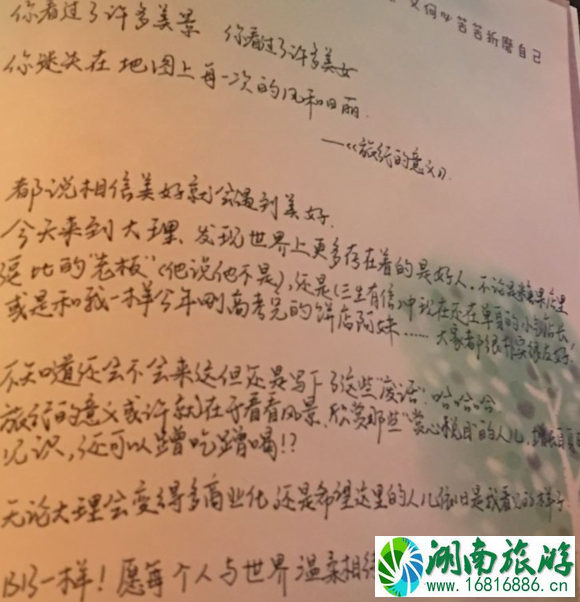 又何必苦苦折磨自己
你看过了许多美景 你看过了许多美女
你迷失在地图上每一次的风和日丽
——《旅行的意义》
都说相信美好就会遇到美好.
今天来到大理、发现世界上更多存在着的是好人.不论是糖果店里
逗比的"老板"(他说他不是),还是《三生有信》中现在还在单身的小店长
或是和我一样今年刚高考完的饼店阿妹……大家都很友好
不知道还会不会来这但还是写下了这些"废话"哈哈哈
旅行的意义或许就在于看看风景、欣赏那些"赏心悦目"的人儿,增长
见识,还可以蹭吃蹭喝!?
无论大理会变得多商业化,还是希望这里的人儿依旧是我看见的样子.
一样!愿每个人与世界温柔相
湖南旅游
www.16816886.cn